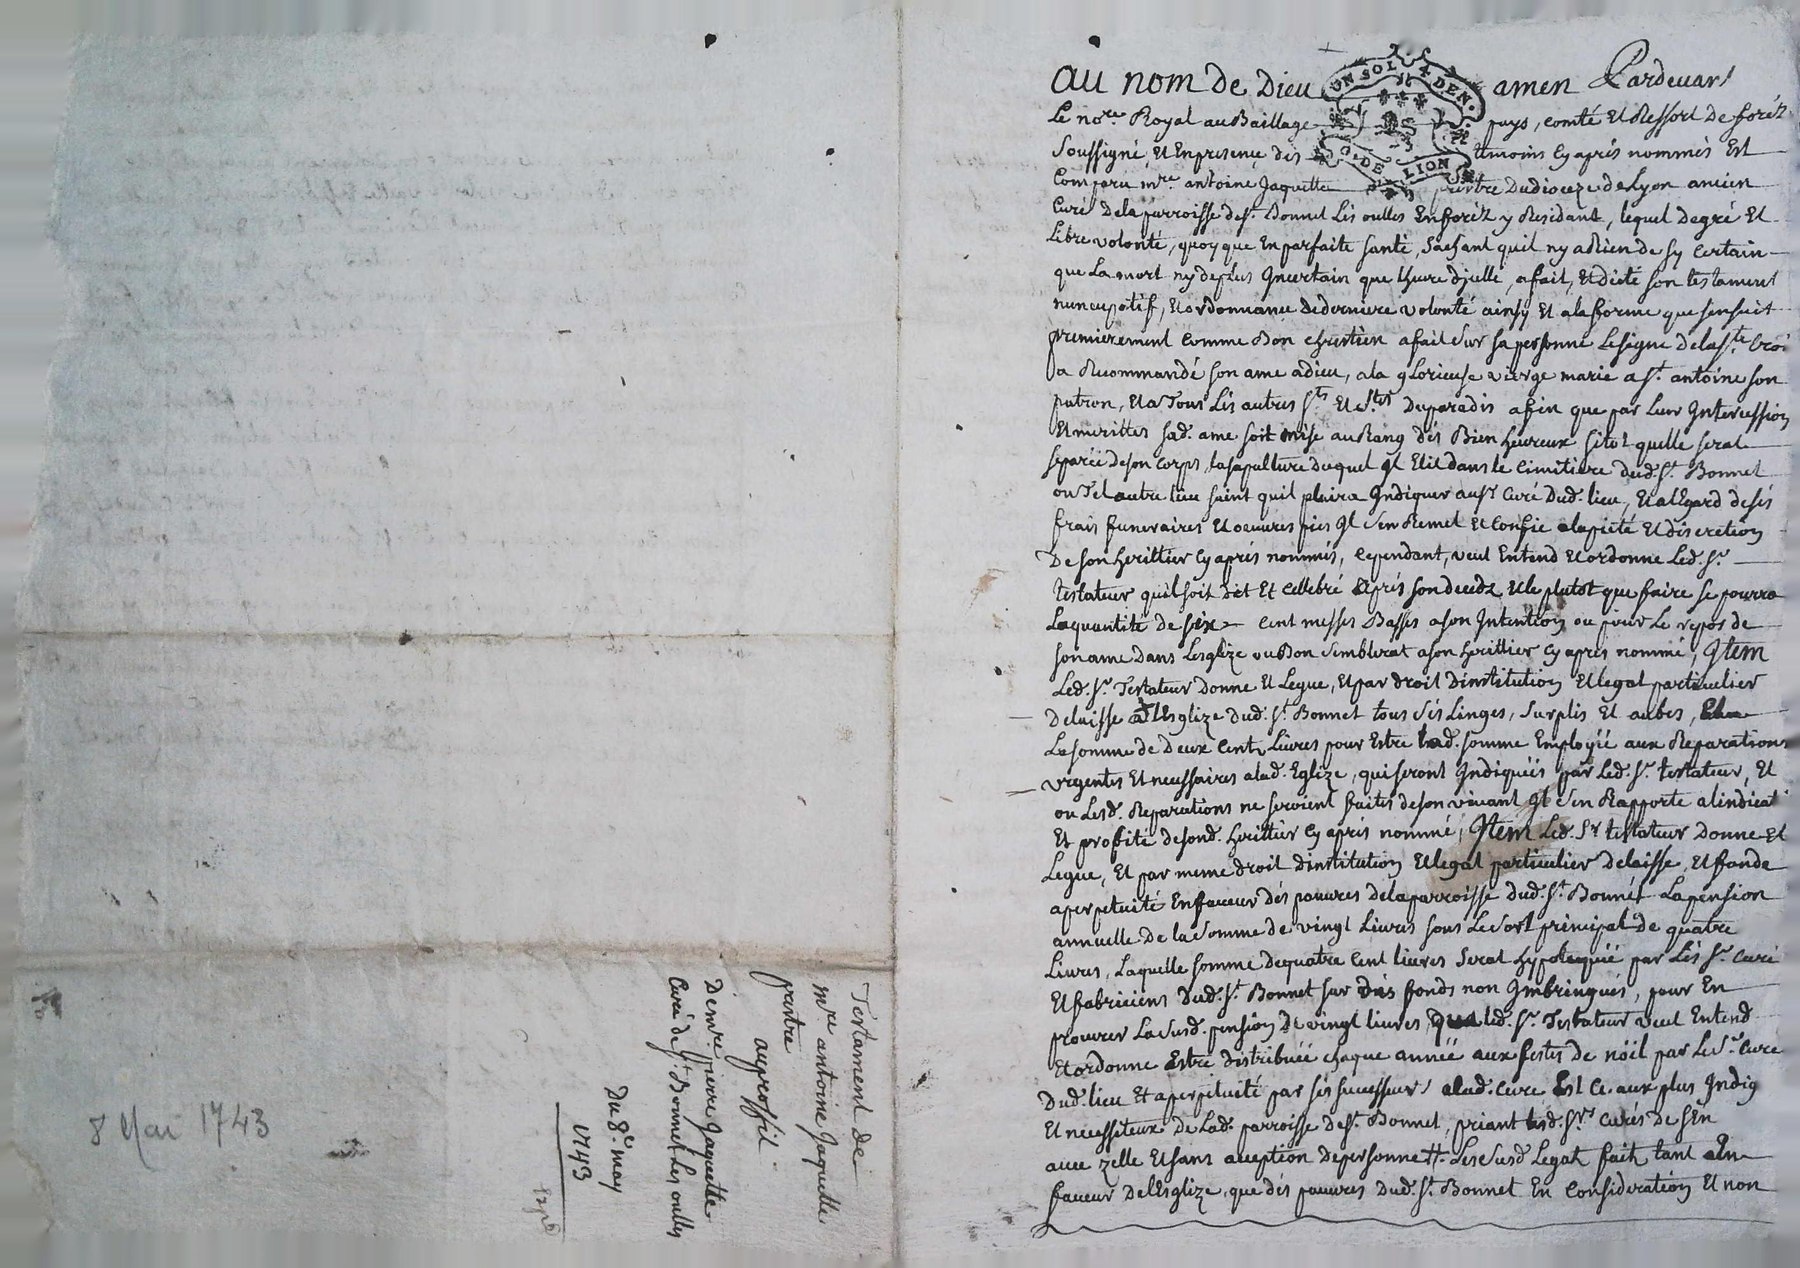 au nom de Dieu amen Pardevant
UN SOL 4 DEN.
G. DE LION
Le no.re Royal au Baillage pays, comté Et Ressort de foréz
soussigné, Et En presence des temoins cy aprés nommés Est
Comparu m.re antoine Jaquette prestre du dioceze de Lyon ancien
Curé de la parroisse de S.t Bonnet Lés oulles En foréz y Residant, lequel de gré Et
Libre volonté, quoy que En parfaite santé, sachant quil ny a Rien de sy Certain
que La mort ny de plus Incertain que lheure djcelle, a fait, Et dicté son testament
nuncupatif, Et ordonnance de derniere volonté ainsy Et a la forme que sensuit
premierement Comme Bon chrestien a fait sur sa personne Le signe de la S.te Croi
a Recommandé son ame a dieu, a la glorieuse vierge marie a S.t antoine son
patron, Et a Tous Lés autres S.ts Et S.tes du paradis afin que par Leur Intercession
Et merittes sad. ame soit mise au Rang dés Bien heureux sitot quelle serat
separée de son Corps, la sapulture duquel Il Elit dans le Cimitiere dud. S.t Bonnet
ou Tel autre lieu saint quil plaira Indiquer au S.r Curé dud. lieu, Et a lEgard de sés
frais funeraires Et oeuvres pies Il s'en Remet Et Confie a la pieté Et discretion
De son herittier Cy aprés nommés, Cependant, veut Entend Et ordonne Led. S.r
testateur quil soit dit Et Cellebré aprés son decedz Et le plutot que faire se pourra
La quantité de six Cent messes Basses a son Intention ou pour Le repos de
son ame dans Lesglize ou Bon semblerat a son herittier Cy aprés nommé, Item
Led. S.r Testateur donne Et Legue, Et par droit dinstitution Et legat particulier
delaisse a lEsglize dud. S.t Bonnet tous sés Linges, surplis Et aubes,
La somme de deux Cent Livres pour Estre lad. somme Employéé aux Reparations
vrgentes Et necessaires a lad. Eglize, qui seront Indiquéés par Led. S.r testateur, Et
ou Lesd. Reparations ne seroient faites de son vivant Il s'en Rapporte a lindicat
Et profité de sond. herittier Cy aprés nommé, Item Led. S.r testateur donne Et
Legue, Et par meme droit dinstitution Et legat particulier delaisse, Et fonde
a perpetuité En faveur dés pauvres de la parroisse dud. S.t Bonnét La pension
annuelle de la somme de vingt Livres sous Le sort principal de quatre
Livres, Laquelle somme de quatre Cent livres serat hypotequéé par Lés S.r Curé
Et fabriciens dud. S.t Bonnet sur dés fonds non Imbringués, pour En
procurer La susd. pension de vingt livres, que led. S.r Testateur veut Entend
Et ordonne Estre distribuéé chaque annéé aux festes de nöil par Le S.r Curé
dud. lieu Et a perpetuité par sés successeurs a lad. Cure Et Ce aux plus Indig
Et necessiteux de Lad. parroisse de S.t Bonnet, priant lesd. S.rs Curés de sEn
avec zelle Et sans aception de personne. Lesd susd Legats faits tant En
faveur de lEsglize, que dés pauvres dud. S.t Bonnet En Consideration Et non
Testament de
m.re antoine Jaquette
prestre
au proffit
De m.re pierre Jaquette
Curé de S.t Bonnet Les oulles
Du 8.e may
1743
8 Mai 1743